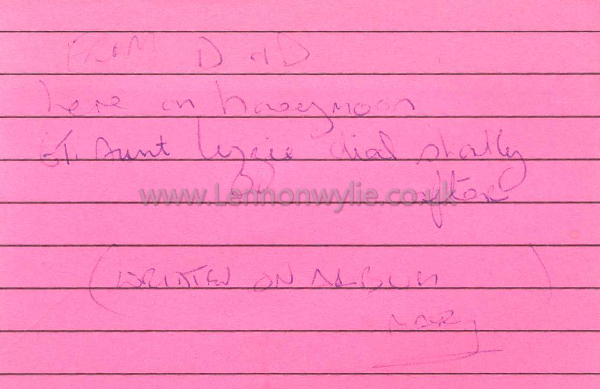 FROM DAD
here on honeymoon
GT. Aunt Lizzie died shortly
after
www.Lennonwylie.co.uk
(WRITTEN ON ALBUM)
MARY